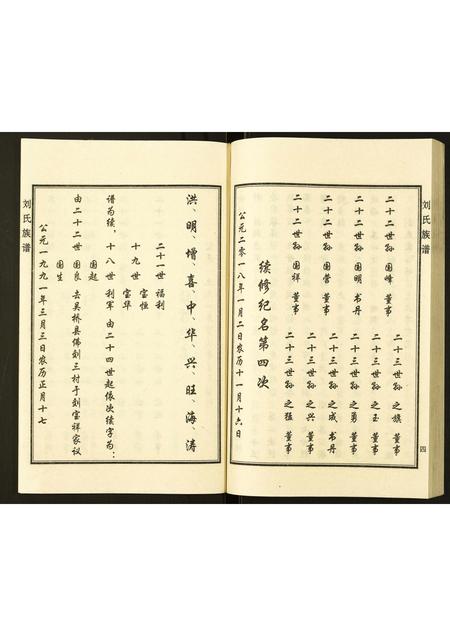 刘氏族谱
四
二十二世孙 国峰 董事
二十二世孙 国明 书丹
二十二世孙 国营 董事
二十二世孙 国祥 董事
二十三世孙 之旗 董事
二十三世孙 之玉 董事
二十三世孙 之勇 董事
二十三世孙 之成 书丹
二十三世孙 之兴 董事
二十三世孙 之猛 董事
续修纪名第四次
公元二零一八年一月二日农历十一月十六日
洪、明、增、喜、中、华、兴、旺、海、涛
二十一世 福利
十九世 宝恒
宝华
谱为续，十八世 利军 由二十四世起依次续字为：
国起
由二十二世 国良 去吴桥县佛刘三村于刘宝祥家议
国生
公元一九九一年三月三日农历正月十七
刘氏族谱